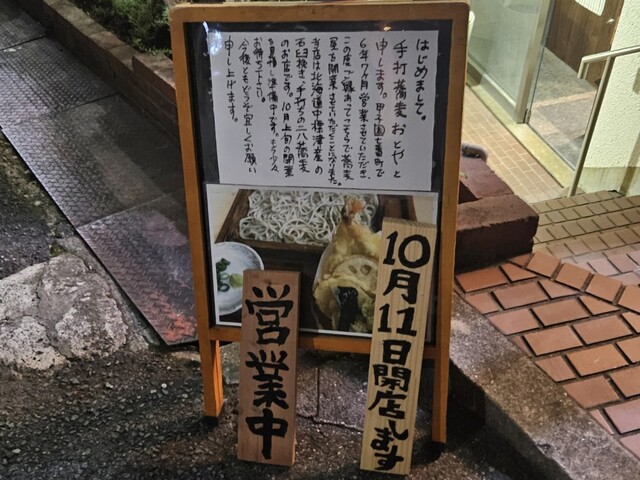 はじめまして。
手打蕎麦おとやと
申します。甲子園七番町で
6年7ヶ月営業させていただき、
この度ご縁あってこちらで蕎麦
屋を開業させていただくことになりました。
当店は北海道中標津産の
石臼挽き、手打ちの二八蕎麦
のお店です。10月上旬の開業
を目指し準備中です。もう少々
お待ち下さい。
今後ともどうぞ宜しくお願い
申し上げます。
営業中
10月11日開店します